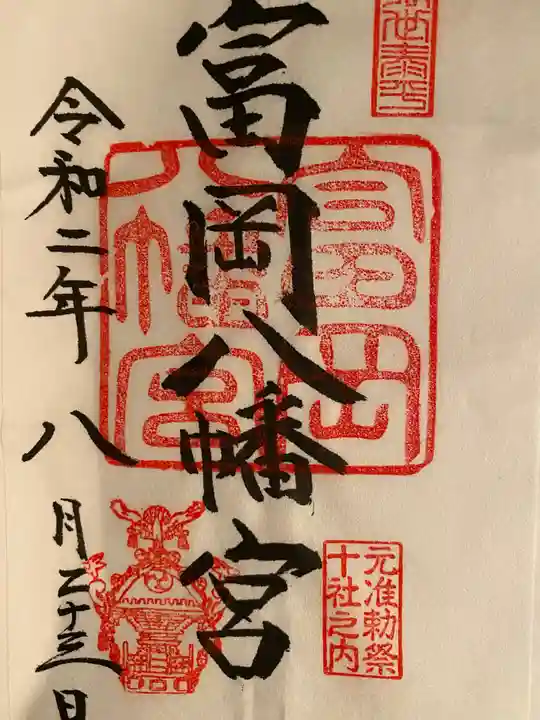 富岡八幡宮
富岡八幡宮
元准勅祭
十社之内
令和二年八月二十三日